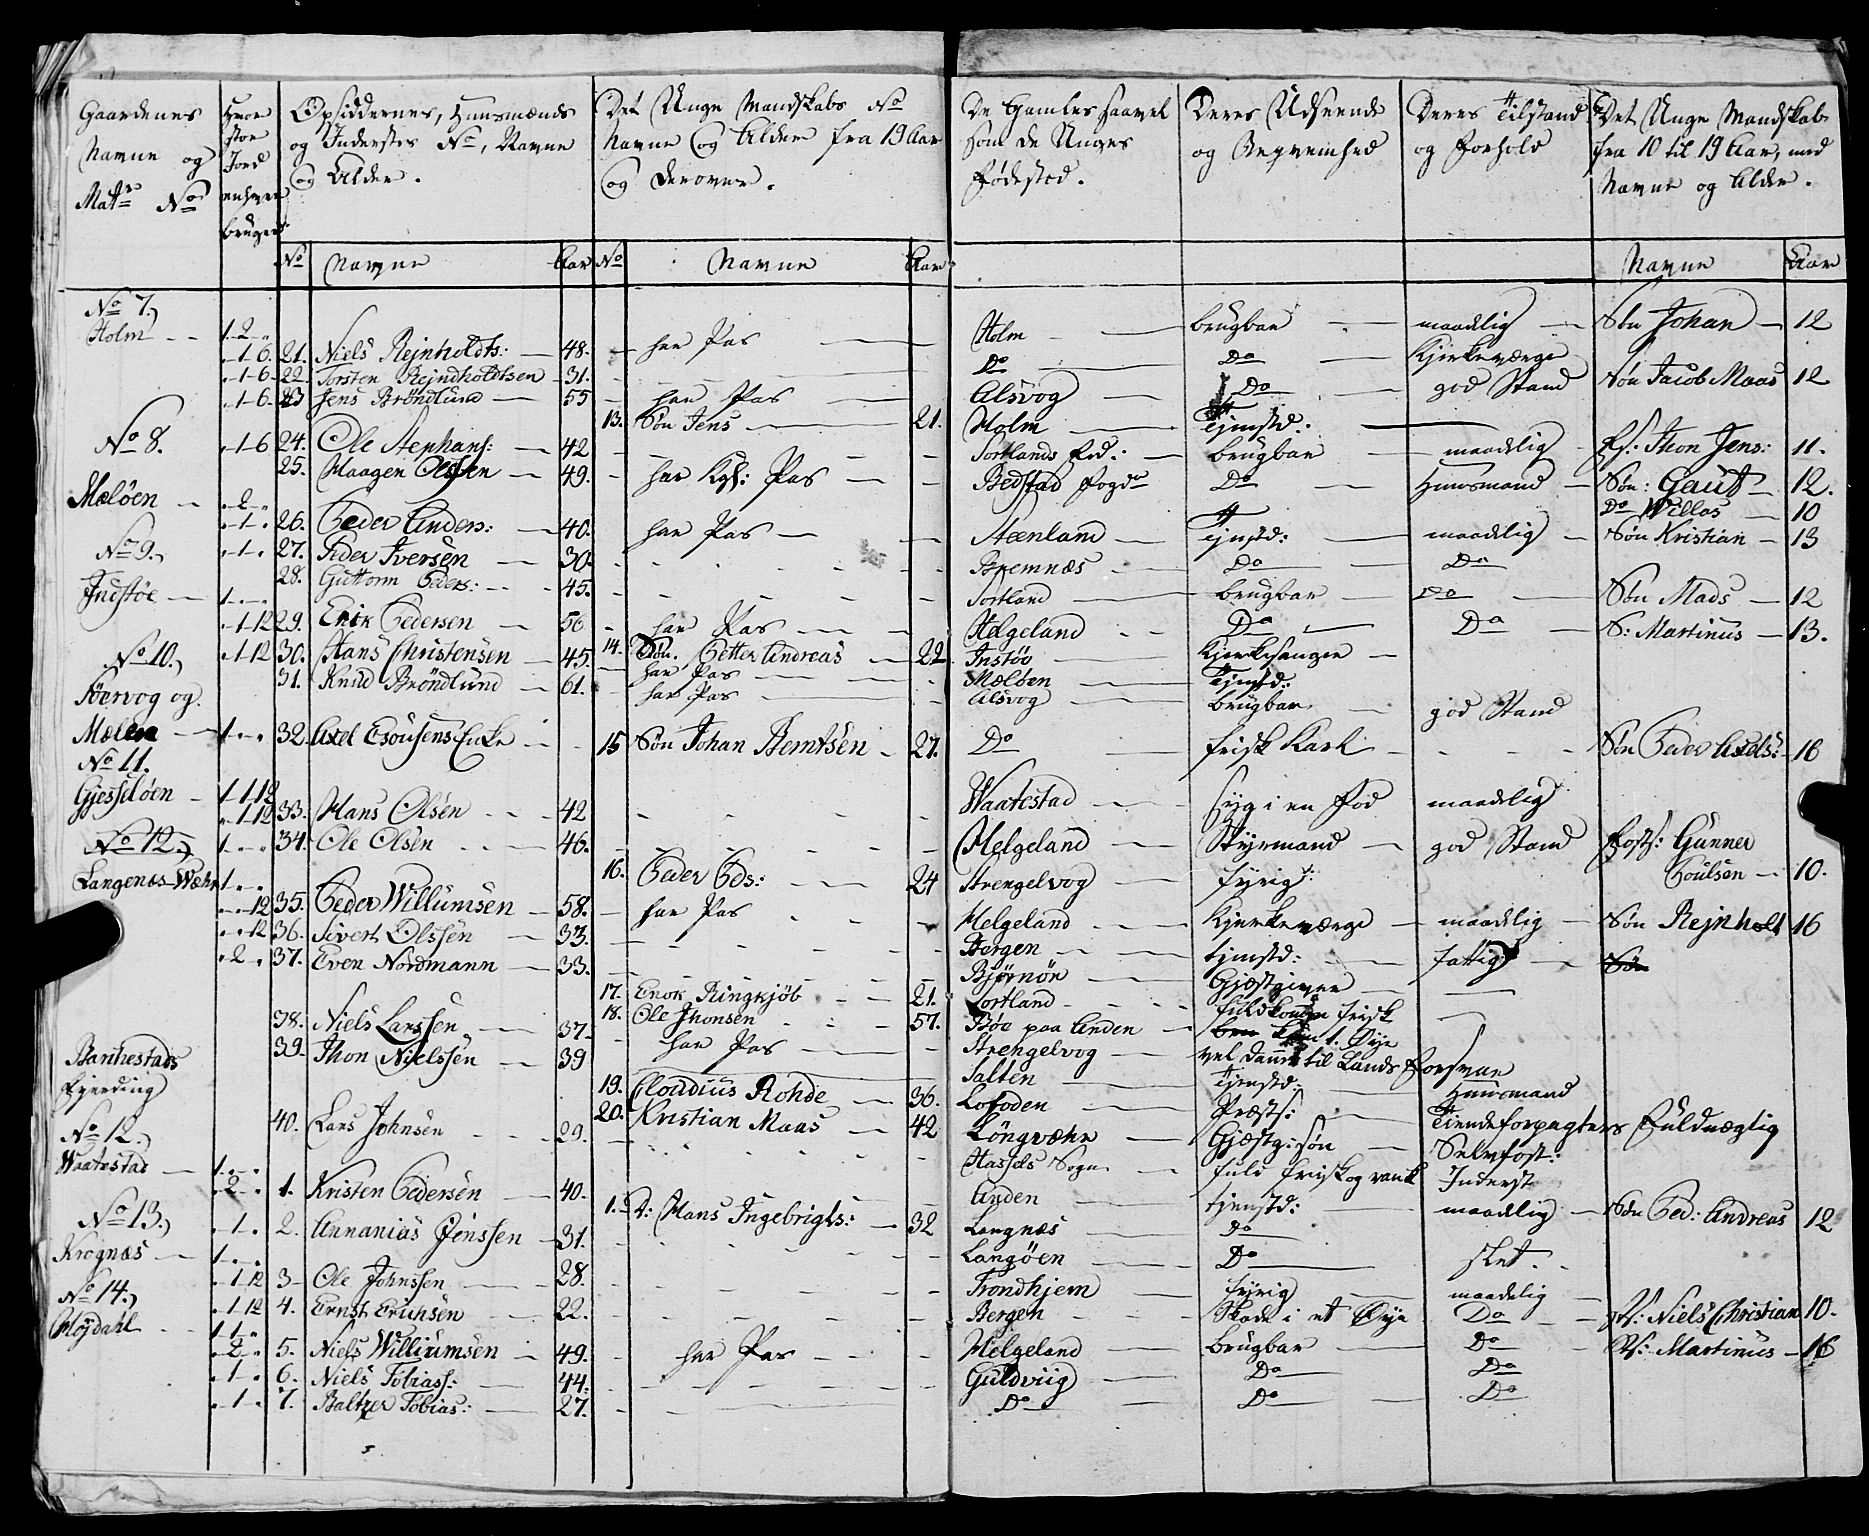 Gaardenes Navne og Matr. No
Hvor stor Jord enhver bruger
Opsiddernes, Huusmænds og Inderstes No, Navne og Alder.
Det Unge Mandskabs No Navne og Alder fra 19 Aar og derover.
De Gamles saavel som de Unges Fødested.
Deres Udseende og Beqvemhed
Deres Tilstand og Forhold
Det Unge Mandskab fra 10 til 19 Aar, med Navne og Alder.
No Navne Aar No Navne Aar Navne Aar
No 7.) Holm 1. 2 „
„ 1 6. 21. Niels Rejnholdts: 48. har Pas Holm brugbar maadelig Søn Johan 12
„ 1 6 22 Torsten Rejndholdtsen 31. Do Do Kjerkeværge
„ 1 6 23 Jens Bröndlund 55 har Pas Alsvog Do god Stand Søn Jacob Maas 12
13. Søn Jens 21. Holm Tjenstd:
No 8. Meløen „ 2 „
„ 1 6 24. Ole Stephans: 42 Sortlands Eid: brugbar maadelig Ps: Thon Jens: 11.
25. Haagen Olssen 49. har Kgl: Pas Bedstad Fogd. Do Huusmand Søn: Gaut 12.
Do Willas 10
„ 1 „ 26. Peder Anders: 40. har Pas Steenland Tjenstd: maadelig Søn Kristian 13
No 9. Indstöe 1 „ „
„ 1 „ 27. Peder Iversen 30. Bremnæs Do Do
28. Guttorm Peders: 45. Sortland brugbar Do Søn Mads 12
„ 1 12 29. Erik Pedersen 56 har Pas Helgeland Do Do S: Martinus 13.
14. Søn. Petter Andreas 22 Instöe Kjerkesanger
No 10.) Föervog og Meløen 1 „ „
„ 1 12 30. Hans Christensen 45. har Pas Meløen Tjenstd:
31. Knud Bröndlund 61. har Pas Alsvog brugbar god Stand
32. Axel Esousens Enke 15 Søn Johan Berntsen 27. Do frisk Karl Søn Peder Axels: 16
No 11. Gjesseløen 1 1 12
„ 1 12 33. Hans Olsen 42 Waatestad syg i en Fod maadelig
No 12.) Langenæs-Wæhr 1 „ „
1 „ „ 34. Ole Olsen 46. Helgeland Styrmand god Stand Fosts: Gunner Poulsen 10.
16. Peder Pds: 24 Strengelvog fyrig
„ „ 12 35. Peder Willumsen 58. har Pas Helgeland Kjerkeværge maadelig Søn Rejnholt 16
„ „ 12 36. Sivert Olssen 33. Bergen tjenstd: fattig Søn
„ 2 „ 37. Even Nordmann 33. Bjørnör Gjæstgiver
17. Enok Ringkjöb 21. Sortland fuldkommen frisk
18. Ole Jhonsen 57. Böe paa Anden kun 1. Øye
38. Niels Larssen 37. har Pas Strengelvog vel dannet til Lands Forsvar
39. Thon Nielssen 39 Salten Tjenstd: Huusmand
19. Cloudius Rohde 36. Lofoden Præsts: Tiendeforpagters Fuldmægtig
20. Kristian Maas 42 Löngvæhr Gjæstg: søn Selvfost:
40. Lars Johnsen 29. Hassels Sogn fuld frisk og rank Inderst
Banhestads Fjerding
No 12.) Waatestad 1 „ „
„ 2 „ 1. Kristen Pedersen 40. Anden tjenstd: maadelig Søn Ped: Andreas 12
1. S: Hans Ingebrigts: 32 Langnæs Do
„ 1 „ 2. Annanias Jenssen 31. Langöen Do slet.
No 13.) Krognæs 1 „ „
„ 1 12 3 Ole Johnssen 28. Trondhjem fyrig maadelig
„ 1 12 4. Ernst Erichsen 22. Bergen Skade i et Øye Do S: Niels Christian 10.
No 14.) Höjdahl 1 1 „
„ 2 „ 5. Niels Williumsen 49. har Pas Helgeland brugbar Do S: Martinus 16
„ 1 „ 6. Niels Tobiass: 44. Guldviig Do Do
„ 1 „ 7. Baltzer Tobias: 27. Do Do Do